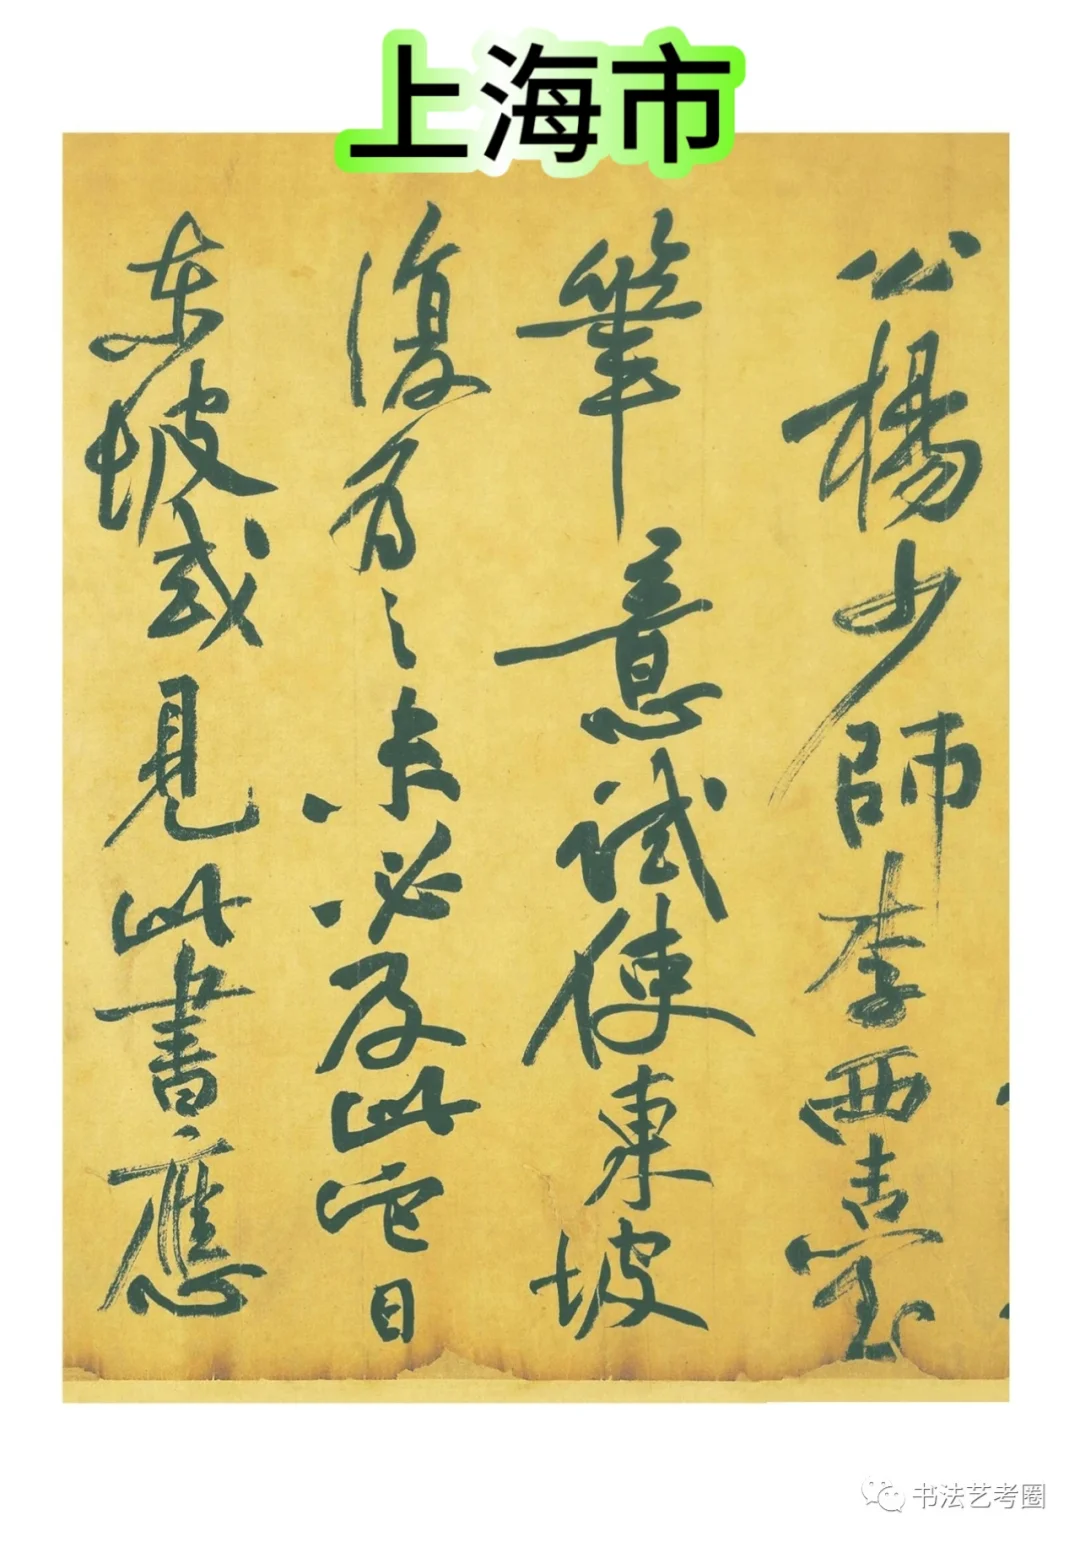 上海市
公楊少師李西臺
筆意試使東坡
復為之未必及此它日
东坡或見此書應
书法艺考圈